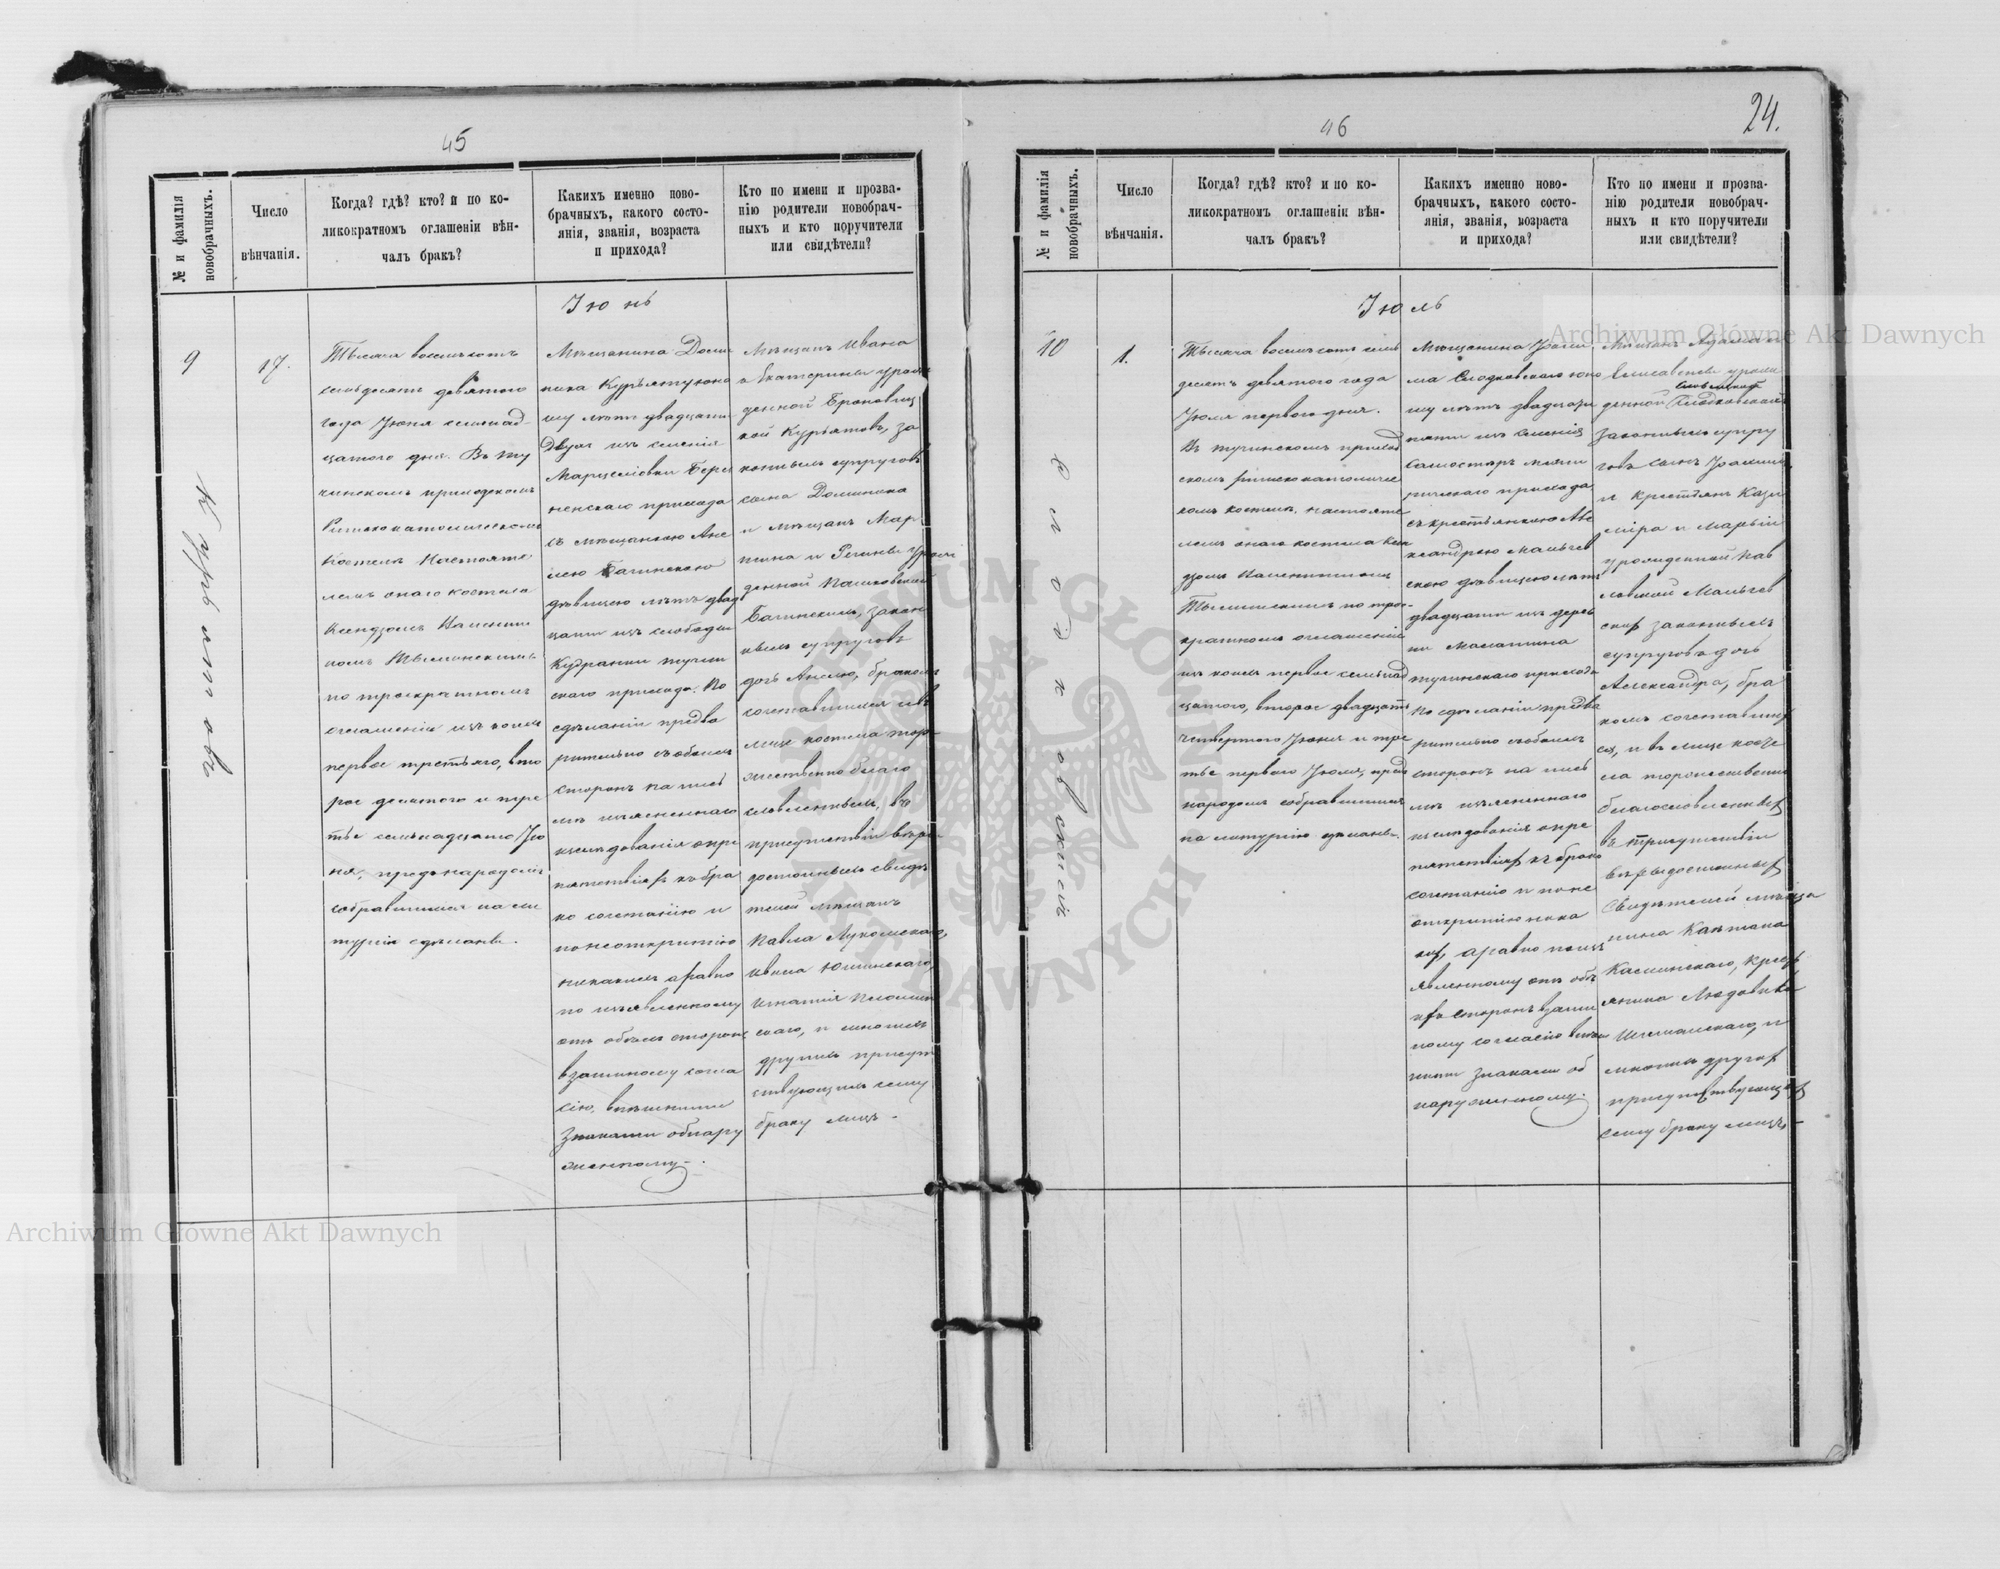 45
№ и фамилія
новобрачныхъ.
Число
вѣнчанія.
Когда? гдѣ? кто? и по ко-
ликократномъ оглашеніи вѣн-
чалъ бракъ?
Каких­ъ именно ново-
брачныхъ, какого состо-
янія, званія, возраста
и прихода?
Кто по имени и прозва-
нію родители новобрач-
ныхъ и кто поручители
или свидѣтели?
Іюнь
9
17.
Тысяча восемьсотъ
семьдесятъ девятого
года Іюня семнад-
цатого дня. Въ ту
чинскомъ приходскомъ
Римскокатолическомъ
Костелѣ Настояте
лемъ онаго костела
Ксендзомъ Валенти
номъ
по троекратномъ
оглашеніи изъ коихъ
первое третьяго, вто
рое десятого и тре
тье семьнадцатого Ію
ня, предъ народомъ
собравшимся на ли
тургію сдѣланы.
Мѣщанина Доми
ника Курьяту юно
шу лѣтъ двадцати
двухъ изъ селенія
Марцелювки Берез
ненскаго прихода
съ мѣщанкою Анѣ
лею Багинскою
дѣвицею лѣтъ двад
цати изъ слободы
Кудранки тучин
скаго прихода. По
сдѣланіи предва
рительно съ обоихъ
сторонъ на пись
мѣ изъясненнаго
изслѣдованія о пре
пятствіяхъ къ бра
ко сочетанію и
по неоткрытію
никакихъ а равно
по изъявленному
отъ обоихъ сторонъ
взаимному согла
сію, внѣшними
знаками обнару
женному.
Мѣщанъ Ивана
и Екатерины урож
денной Броновиц
кой Курьятовъ, за
конныхъ супруговъ
сына Доминика
и мѣщанъ Мар
и Регины урож
денной Пашковской
Багинскихъ, закон
ныхъ супруговъ
дочь Анелю, бракомъ
сочетавшихся и въ
лицѣ костела тор-
жественно благо
словленныхъ, въ
присутствіи вѣро
достойныхъ свидѣ
телей мѣщанъ
Павла Лукомскаго,
Ивана Юшинскаго,
Игнатія
скаго, и многихъ
другихъ присут
ствующихъ сему
браку лицъ.
46
24.
№ и фамилія
новобрачныхъ.
Число
вѣнчанія.
Когда? гдѣ? кто? и по ко-
ликократномъ оглашеніи вѣн-
чалъ бракъ?
Какихъ именно ново-
брачныхъ, какого состо-
янія, званія, возраста
и прихода?
Кто по имени и прозва-
нію родители новобрач-
ныхъ и кто поручители
или свидѣтели?
Іюль
10
1.
Тысяча восемьсотъ семь
десятъ девятого года
Іюля первого дня.
Въ тучинскомъ приход
скомъ римско католичес
комъ костелѣ, настояте
лемъ онаго костела Ксен
дзомъ Валентиномъ
по трое-
кратномъ оглашеніи
изъ коихъ первое семьнад
цатого, второе двадцать
четвертого Іюня и тре
тье первого Іюля, предъ
народомъ собравшимся
на литургію сдѣланы.
Мѣщанина
юно
шу лѣтъ двадцати
пяти изъ селенія
прихода
съ крестьянкою Але
ксандрою
скою дѣвицею лѣтъ
двадцати изъ дерев
ни
тучинскаго прихода
по сдѣланіи предва
рительно съ обоихъ
сторонъ на пись
мѣ изъясненнаго
изслѣдованія о пре
пятствіяхъ къ брако
сочетанію и по не
открытію ника
кихъ, а равно по изъ
явленному отъ обо
ихъ сторонъ взаим
ному согласію внѣш
ними знаками об
наруженному.
Мѣщанъ Адама и
Елисаветы урожд
денной
законныхъ супру
говъ сынъ
и крестьянъ Кази
міра и Марьіи
урожденной Пав
ловской
скихъ законныхъ
супруговъ дочь
Александра, бра
комъ сочетавших
ся, и въ лицѣ косте
ла торжественно
благословленныхъ
въ присутствіи
вѣродостойныхъ
свидѣтелей мѣща
нина
крест
янина Людовика
и
многихъ другихъ
присутствующихъ
сему браку лицъ
Archiwum Główne Akt Dawnych
Archiwum Główne Akt Dawnych
ARCHIWUM GŁÓWNE
AKT DAWNYCH